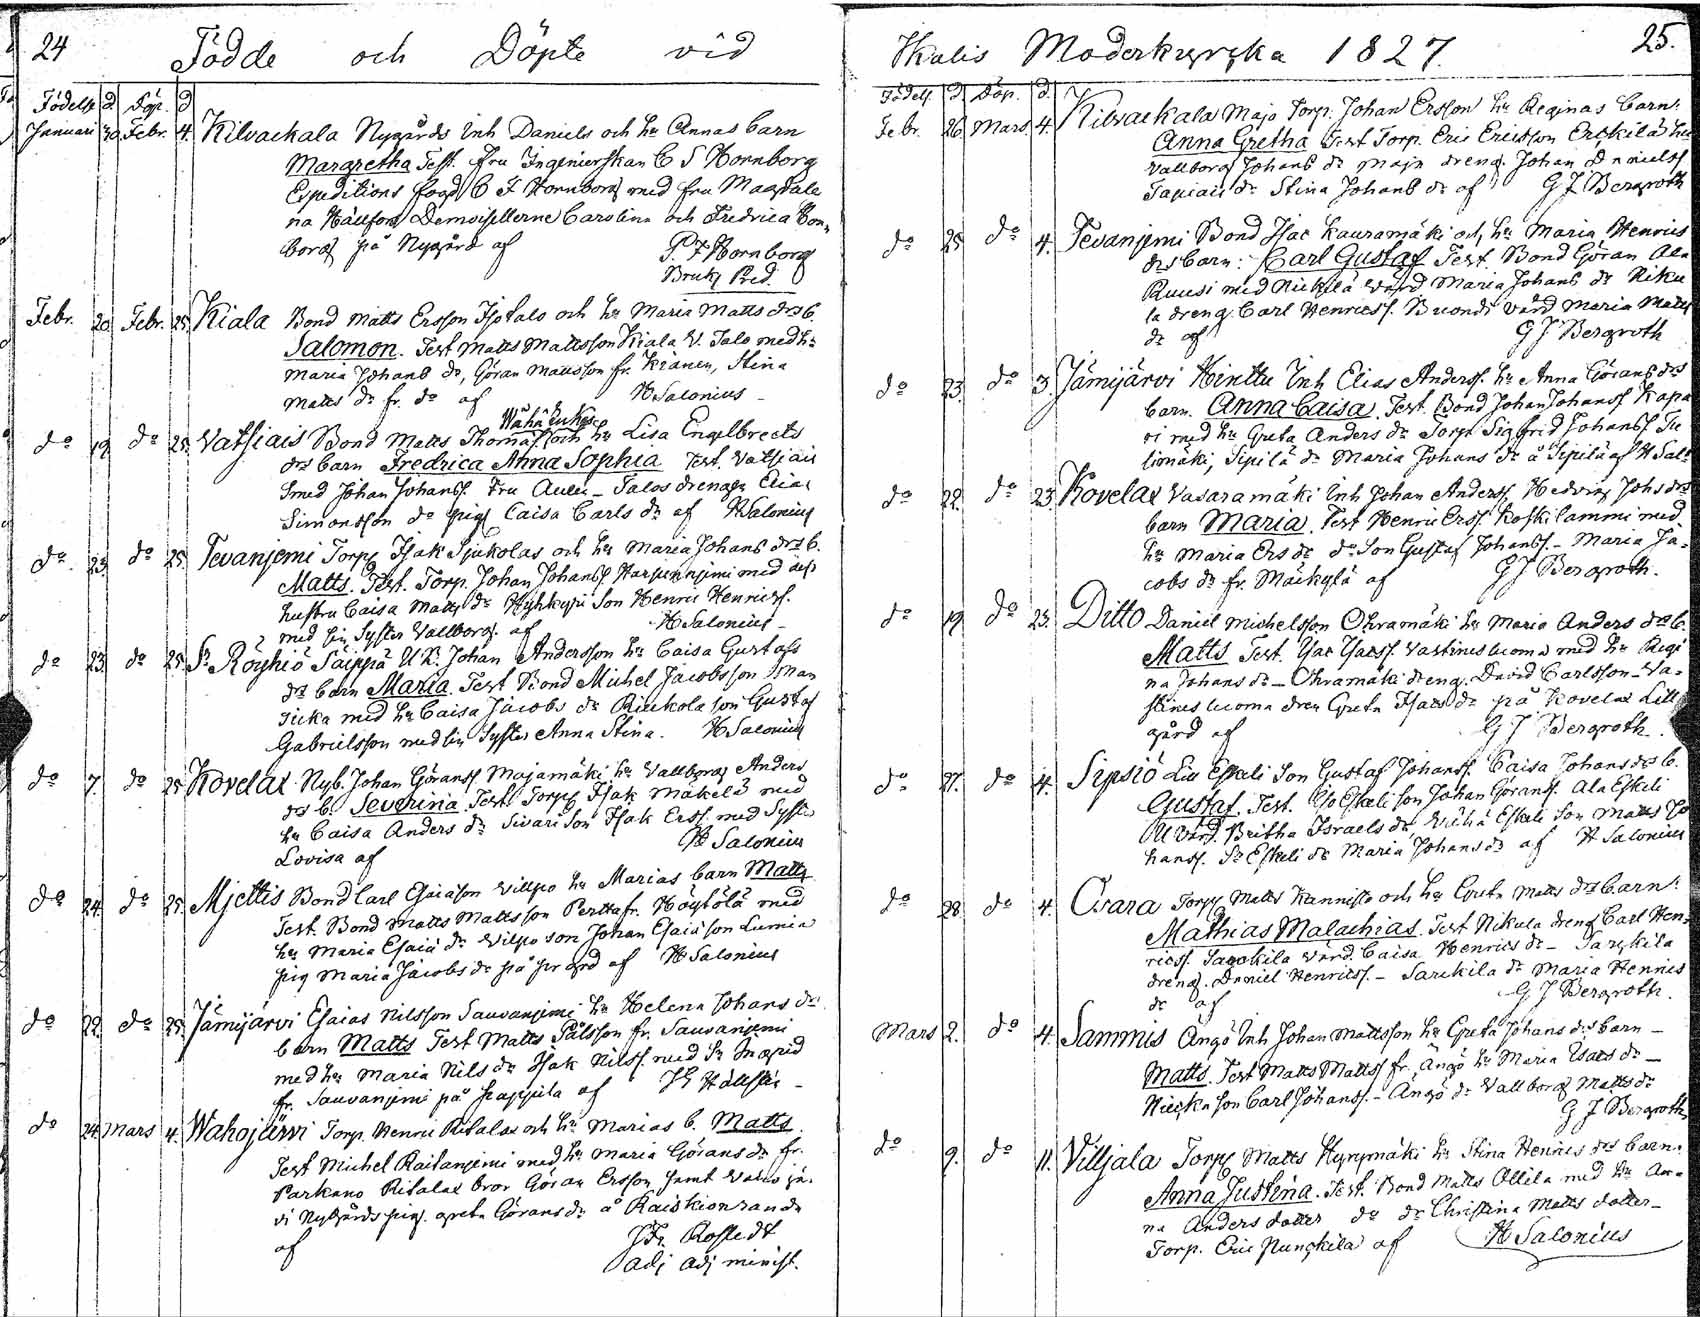 24 Födde och Döpte vid
Födelse d Döp. d
Januari 30 Febr. 4. Kilvackala Nygårds Inh Daniels och hu Annas barn
Margretha Test. fru Ingenierskan C S Hornborg
Expeditions fogd C F Hornborg med fru Magdale
na Hällfors Demoisellerne Carolina och Fredrica Horn
borg på Nygård af P. F Hornborg
Bruks Pred.
Febr. 20 Febr. 25. Kiala Bond Matts Ersson Isotalo och hu Maria Matts drs b.
Salomon. Test Matts Mattsson Kiala V. Talo med h:
Maria Johans dr, Göran Mattsson fr. Stina
Matts dr fr. do af H Salonius
Wähä
do 19. do 25. Vatsiais Bond Matts Thomass och hu Lisa Engelbrects
drs barn Fredrica Anna Sophia Test. Vatsiais
smed Johan Johanss. Fru Talos drengen Elias
Simonsson do pig Caisa Carls dr af H Salonius
do 23. do 25. Tevanjemi Torp Isak Sjukolas och hu Maria Johans drs b.
Matts. Test. Torp. Johan Johanss Harjunnjemi med dess
hustru Caisa Matts dr Hyhkyri Son Henric Henricss.
med sin Syster Vallborg. af H Salonius
do 23. do 25. St Röyhiö Säippä U.K. Johan Andersson hu Caisa Gustafs
drs barn Maria. Test Bond Michel Jacobsson
med hu Caisa Jacobs dr Riukola son Gustaf
Gabrielsson med sin Syster Anna Stina. H Salonius
do 7. do 25 Kovelax Nyb. Johan Göranss Majamäki hu Vallborg Anders
drs b. Severina. Test Torp Isak Mäkelä med
hu Caisa Anders dr Sivari Son Isak Erss. med Syster
Lovisa af H Salonius
do 24. do 25. Mjettis Bond Carl Esaiason Villpo hu Marias barn Matts
Test. Bond Matts Mattsson Perttu fr. Höytölä med
hu Maria Esaiæ dr Vilpo son Johan Esaiæson Lumia
pig Maria Jacobs dr på af H Salonius
do 22. do 25. Jämijärvi Esaias Nilsson Sauvanjemi hu Helena Johans dr
barn Matts Test Matts Pålsson fr. Sauvanjemi
med hu Maria Nils dr Isak Nilss. med Ingrid
fr. Sauvanjemi på Pappila af
do 24. Mars 4. Wahojärvi Torp. Henric Ritalas och hu Marias b. Matts.
Test Michel Raitanjemi med hu Maria Görans dr fr.
Parkano Ritalas bror Göran Ersson samt
vi Nybgårds pig. Greta Görans dr å Raiskionranda
af Rostedt
adj adj minist.
Ikalis Moderkyrka 1827. 25.
Födelse. d Döp. d.
Febr. 26. Mars. 4. Kilvackala Majo Torp. Johan Ersson hu Reginas barn:
Anna Gretha Test Torp. Eric Ericsson Erckilä hu
Vallborg Johans dr Majo dreng. Johan Daniels
Tapiais dr Stina Johans dr af G J Bergroth
do 25 do 4. Tevanjemi Bond Isac Kauramäki och hu Maria Henrics
drs barn: Carl Gustaf Test. Bond Göran Ala
Ruusi med värd Maria Johans dr Niku
la dreng. Carl Henricss. värd Maria Matts
dr af G J Bergroth
do 23. do 3. Jämijärvi Hinttu Inh Elias Anderss. hu Anna Görans drs
barn. Anna Caisa. Test. Bond Johan Johanss Kapa
ri med hu Greta Anders dr Torp. Sigfrid Johanss.
limäki, Sipilä dr Maria Johans dr å Sipilä af H Sal:
do 22. do 23. Kovelax Vasaramäki Inh Johan Anderss. Hedvig Johs drs
barn Maria. Test Henric Erss. Koskilammi med
hu Maria Ers dr do Son Gustaf Johanss. – Maria Ja-
cobs dr fr. Mäckylä af G J Bergroth.
do 19. do 23. Ditto Daniel Michelsson Ohramäki hu Maria Anders drs b.
Matts Test. Isac Isacss. Vastinesluoma med hu Regi
na Johans dr – Ohramäki dreng. David Carlsson – Va-
stinesluoma dreng Greta Isacs dr på Kovelax Lill
gård af G J Bergroth.
do 27. do 4. Sipsiö Lill Eskeli Son Gustaf Johanss. Caisa Johans drs b.
Gustaf. Test. Iso Eskeli son Johan Göranss. Ala Eskeli
U värd. Britha Israels dr, Vähä Eskeli Son Matts Jo
hanss. St Eskeli dr Maria Johans dr af H Salonius
do 28. do 4. Osara Torp Matts Kannisto och hu Greta Matts drs barn:
Mathias Malachias. Test Nikula dreng Carl Hen-
ricss. Sarckila värd. Caisa Henrics dr – Sarckila
dreng. Daniel Henricss. – Sarckila dr Maria Henrics
dr af G J Bergroth.
Mars 2. do 4. Sammis Ängö Inh Johan Mattsson hu Greta Johans drs barn –
Matts. Test Matts Mattss fr. Ängö hu Maria Isacs dr –
son Carl Johanss. – Ängö dr Vallborg Matts dr
G J Bergroth
do 9. do 11. Villjala Torp Matts Hynnmäki hu Stina Henrics drs barn
Anna Justina. Test. Bond Matts Ollila med hu An-
na Anders dotter do dr Christina Matts dotter –
Torp. Eric Punckila af H Salonius